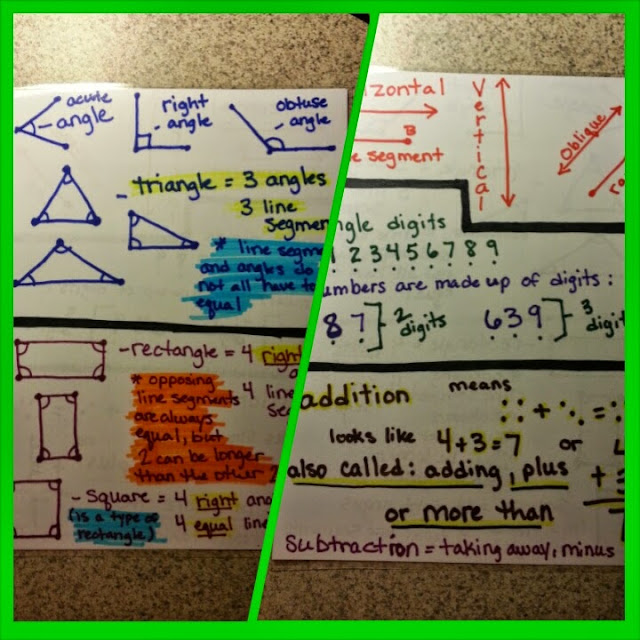 acute
angle
right
angle
obtuse
angle
triangle = 3 angles
3 line
segmen
* line segm
and angles do
not all have to
equal
- rectangle = 4 right
* opposing
line segments
are always
equal, but
2 can be longer
than the other 2
4 line
- square = 4 right
(is a type of
rectangle)
4 equal line
izontal
B
e segment
Vertical
Oblique
ngle digits
1 2 3 4 5 6 7 8 9
umbers are made up of digits:
87 } 2 digits
639 } 3 digit
addition
means
+ =
looks like 4+3=7 or
also called: adding, plus
or more than
subtraction = taking away, minus